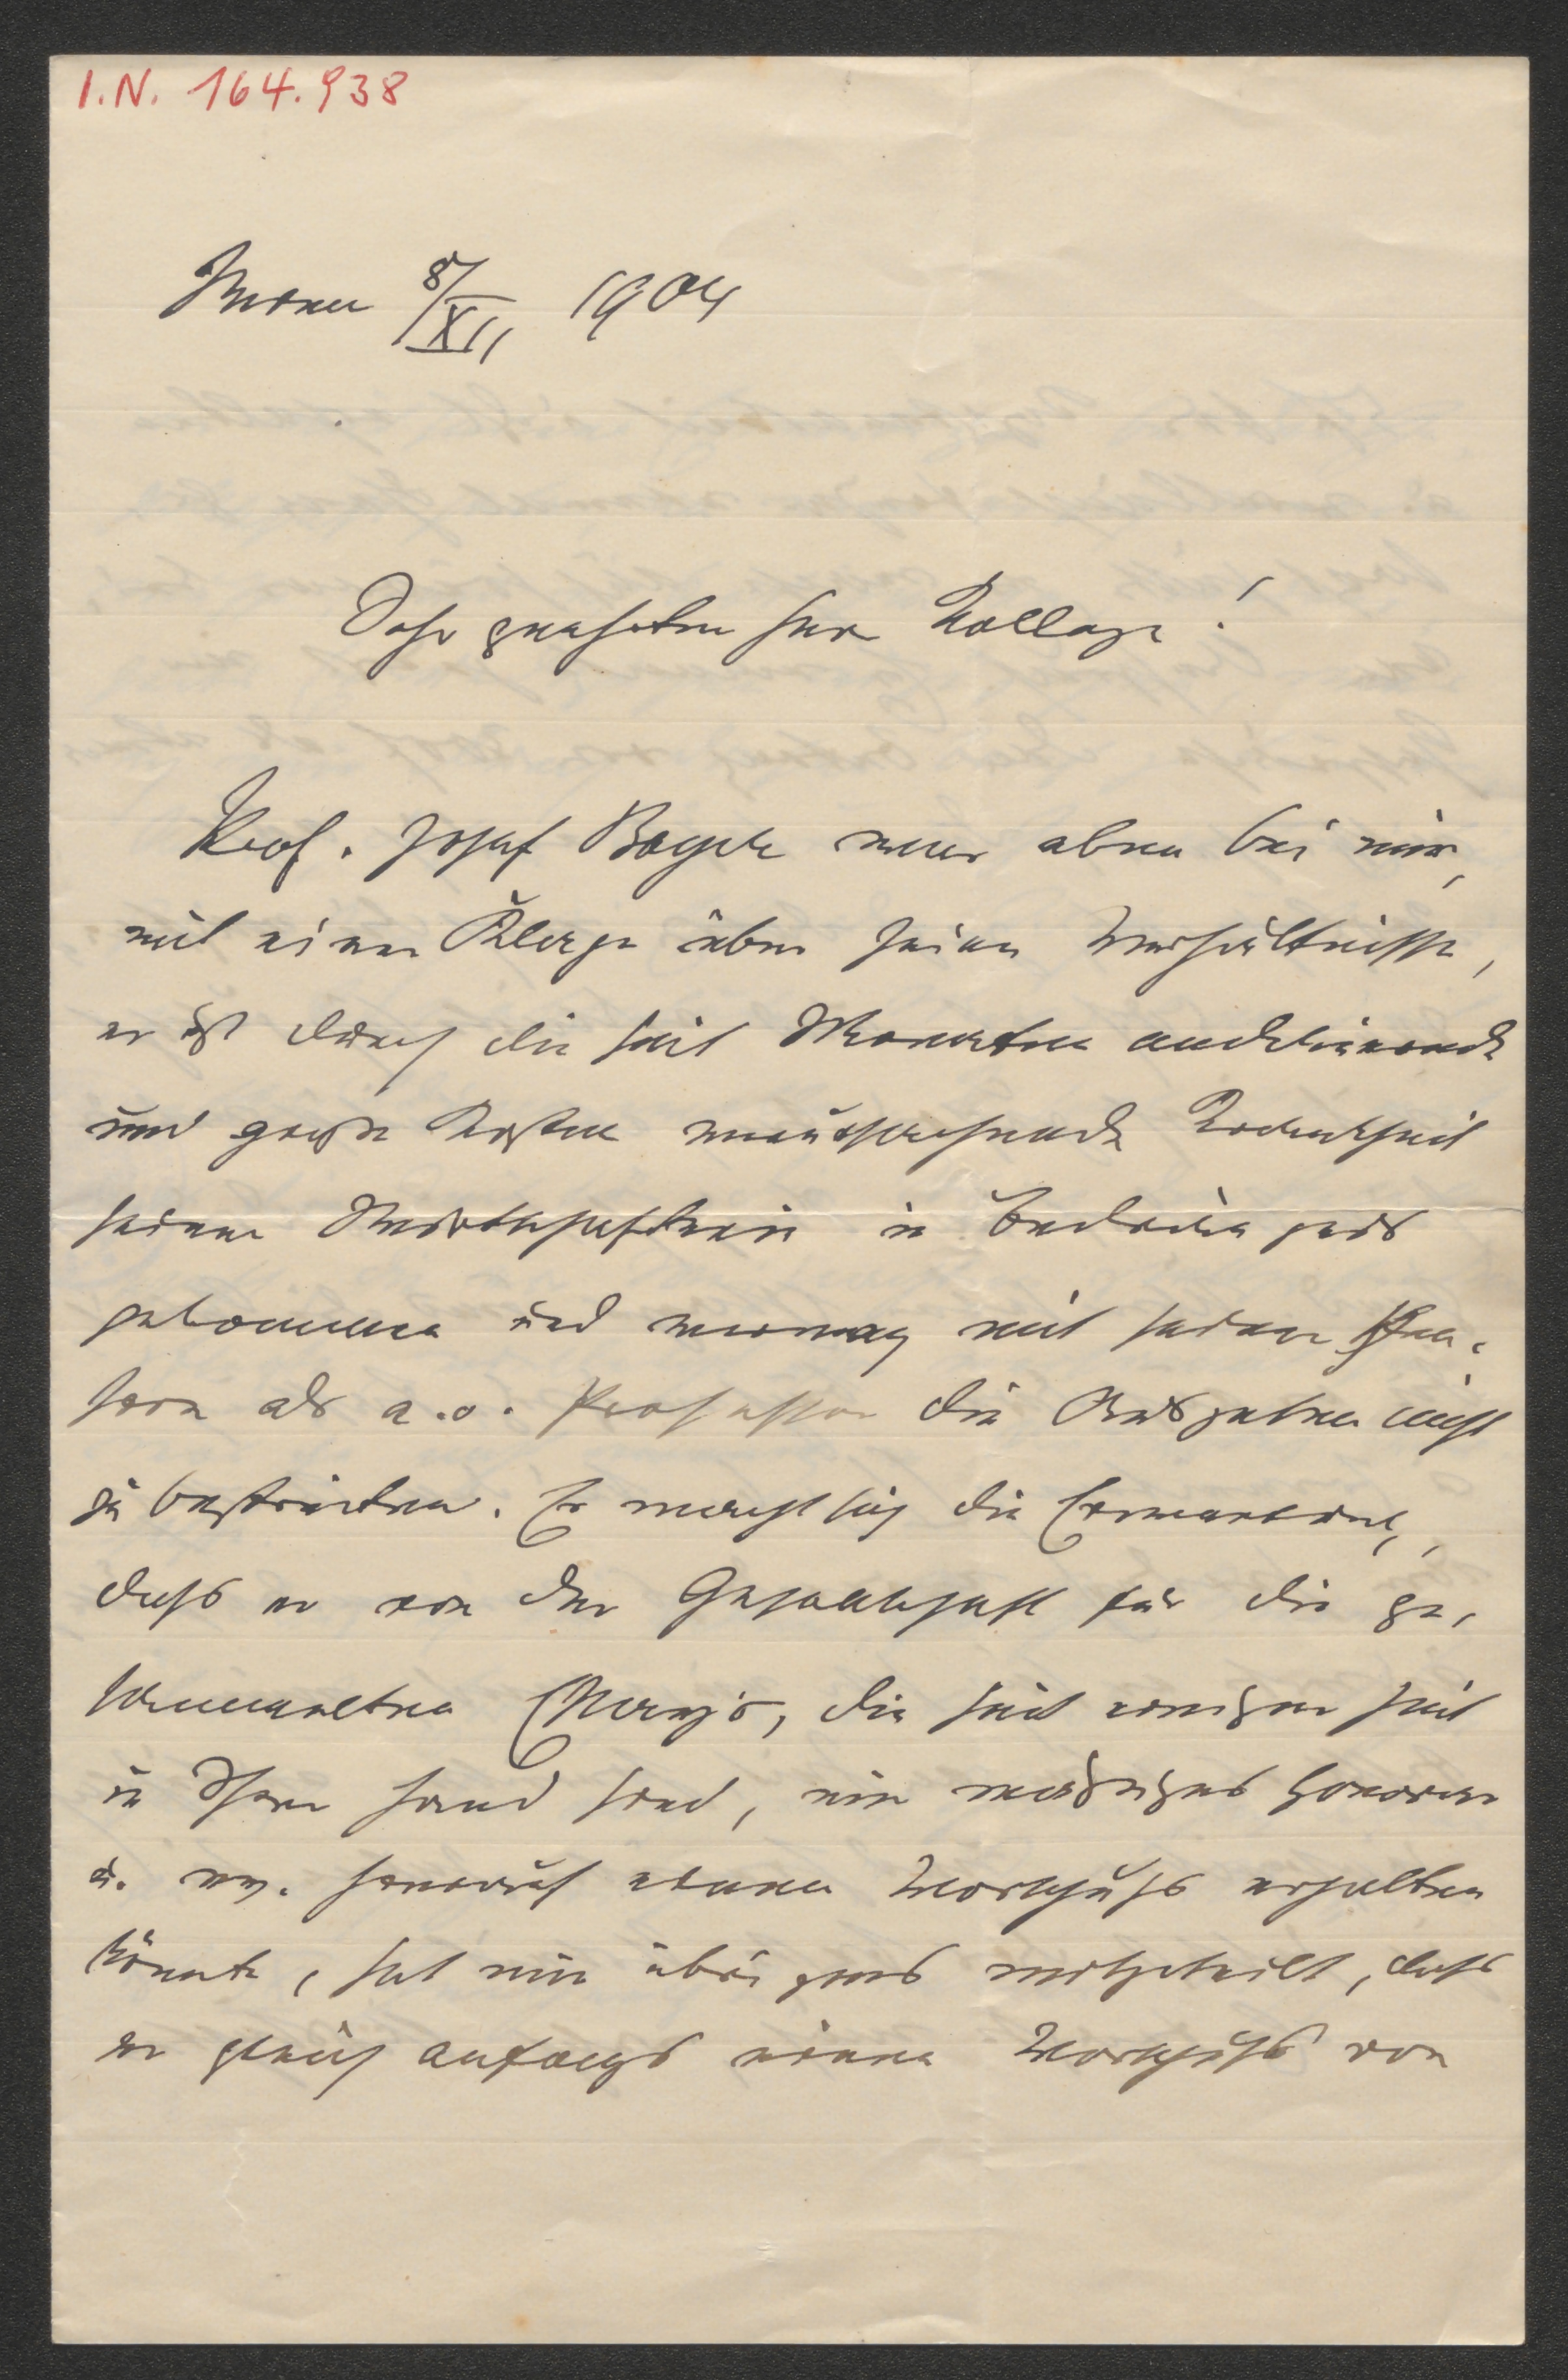 I.N. 164.938
Wien 8/XII 1904
Sehr geehrter Herr Kollege!
Prof. Josef Bayer war eben bei mir,
mit einer Klage über seine Verhältnisse,
er ist durch die seit Monaten andauernde
und große Kosten verursachende Krankheit
seiner Wirthschafterin in Bedrängnis
gekommen und vermag mit seiner Pen-
sion als a.o. Professor die Ausgaben nicht
zu bestreiten. Er macht sich die Erwartung,
dass er von der Gesellschaft für die ge-
sammelten Essays, die seit einiger Zeit
in Ihrer Hand sind, ein mäßiges Honorar
u. ev. hierauf einen Vorschuss erhalten
könnte, hat mir übrigens mitgetheilt, dass
er gleich anfangs einen Vorschuss von